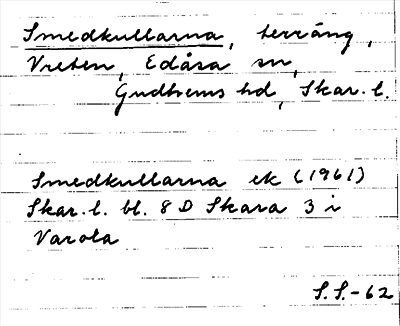 Smedkullarna, terräng,
Vreten, Edåsa sn,
Gudhems hd, Skar. l.
Smedkullarna ek (1961)
Skar. l. bl. 8 D Skara 3 i
Varola
S.S.-62